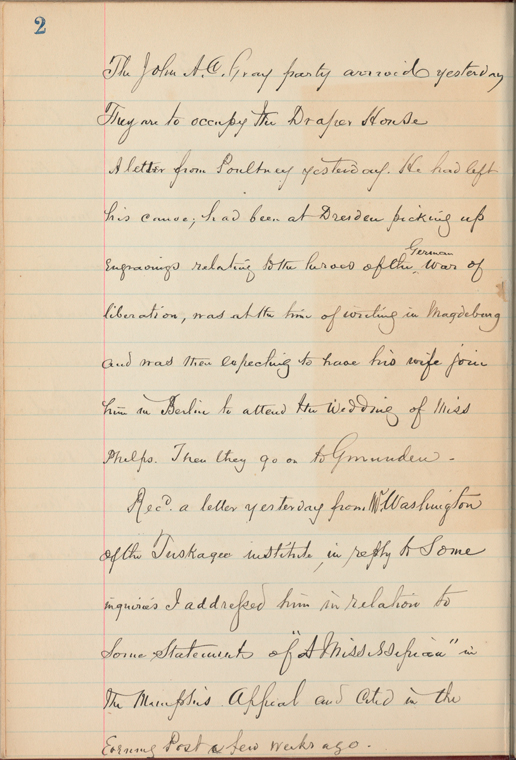 2
The John A. C. Gray party arrived yesterday
They are to occupy the Draper House
A letter from Poultney yesterday. He had left
his canoe; had been at Dresden picking up
Engravings relating to the heroes of the German War of
liberation, was at the time of writing in Magdeburg
and was then expecting to have his wife join
him in Berlin to attend the Wedding of Miss
Phelps. Then they go on to Gmunden -
Recd. a letter yesterday from Mr. Washington
of the Tuskagee institute, in reply to Some
inquiries I addressed him in relation to
Some Statement of "A Mississipian" in
the Memphis Appeal and Cited in the
Evening Post a few weeks ago.